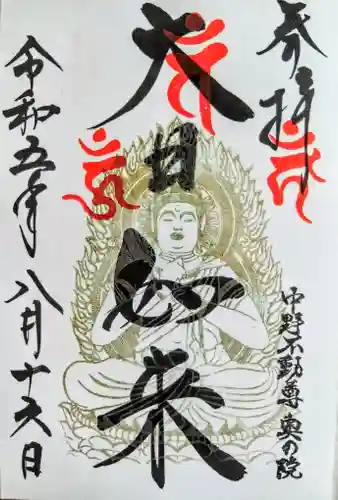 奉拝
中野不動尊 奥の院
大日如来
令和五年八月十六日